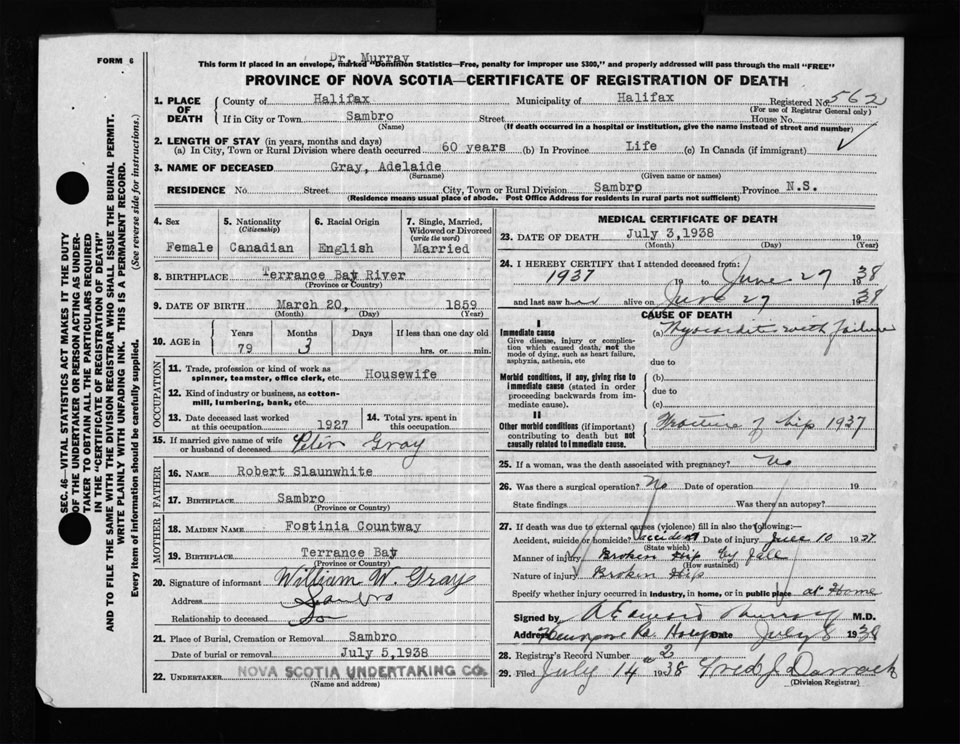 FORM 6
Dr. Murray
This form if placed in an envelope, marked "Dominion Statistics—Free, penalty for improper use $300," and properly addressed will pass through the mail "FREE"
PROVINCE OF NOVA SCOTIA—CERTIFICATE OF REGISTRATION OF DEATH
SEC. 46—VITAL STATISTICS ACT MAKES IT THE DUTY
OF THE UNDERTAKER OR PERSON ACTING AS UNDER-
TAKER TO OBTAIN ALL THE PARTICULARS REQUIRED
IN THE "CERTIFICATE OF REGISTRATION OF DEATH"
AND TO FILE THE SAME WITH THE DIVISION REGISTRAR WHO SHALL ISSUE THE BURIAL PERMIT.
WRITE PLAINLY WITH UNFADING INK. THIS IS A PERMANENT RECORD.
Every item of information should be carefully supplied. (See reverse side for instructions.)
1. PLACE OF DEATH
County of Halifax Municipality of Halifax Registered No. 562
(For use of Registrar General only)
If in City or Town Sambro Street House No.
(Name) (If death occurred in a hospital or institution, give the name instead of street and number)
2. LENGTH OF STAY (in years, months and days)
(a) In City, Town or Rural Division where death occurred 60 years (b) In Province Life (c) In Canada (if immigrant)
3. NAME OF DECEASED Gray, Adelaide
(Surname) (Given name or names)
RESIDENCE No. Street City, Town or Rural Division Sambro Province N.S.
(Residence means usual place of abode. Post Office Address for residents in rural parts not sufficient)
4. Sex Female
5. Nationality (Citizenship) Canadian
6. Racial Origin English
7. Single, Married, Widowed or Divorced (write the word) Married
8. BIRTHPLACE Terrance Bay River
(Province or Country)
9. DATE OF BIRTH March 20, 1859
(Month) (Day) (Year)
10. AGE in Years Months Days If less than one day old
79 3 hrs. or min.
OCCUPATION
11. Trade, profession or kind of work as spinner, teamster, office clerk, etc. Housewife
12. Kind of industry or business, as cotton-mill, lumbering, bank, etc.
13. Date deceased last worked at this occupation 1927
14. Total yrs. spent in this occupation
15. If married give name of wife or husband of deceased Peter Gray
FATHER
16. NAME Robert Slaunwhite
17. BIRTHPLACE Sambro
(Province or Country)
MOTHER
18. MAIDEN NAME Fostinia Countway
19. BIRTHPLACE Terrance Bay
(Province or Country)
20. Signature of informant William W. Gray
Address Sambro
Relationship to deceased Son
21. Place of Burial, Cremation or Removal Sambro
Date of burial or removal July 5, 1938
22. UNDERTAKER NOVA SCOTIA UNDERTAKING CO.
(Name and address)
MEDICAL CERTIFICATE OF DEATH
23. DATE OF DEATH July 3, 1938 19
(Month) (Day) (Year)
24. I HEREBY CERTIFY that I attended deceased from:
1937 19 to June 27 1938
and last saw her alive on June 27 1938
CAUSE OF DEATH
I
Immediate cause
Give disease, injury or complica-
tion which caused death, not the
mode of dying, such as heart failure,
asphyxia, asthenia, etc
(a) Myocarditis with failure
due to
Morbid conditions, if any, giving rise to
immediate cause (stated in order
proceeding backwards from im-
mediate cause).
(b)
due to
(c)
II
Other morbid conditions (if important)
contributing to death but not
causally related to immediate cause.
Fracture of hip 1937
25. If a woman, was the death associated with pregnancy? No
26. Was there a surgical operation? No Date of operation 19
State findings Was there an autopsy?
27. If death was due to external causes (violence) fill in also the following:—
Accident, suicide or homicide? accident Date of injury 10 1937
(State which)
Manner of injury Broken Hip by fall
(How sustained)
Nature of injury Broken Hip
Specify whether injury occurred in industry, in home, or in public place at Home
Signed by Murray M.D.
Address Date July 8 1938
28. Registrar's Record Number 2
29. Filed July 14th 1938 Fred J. Darrach
(Division Registrar)